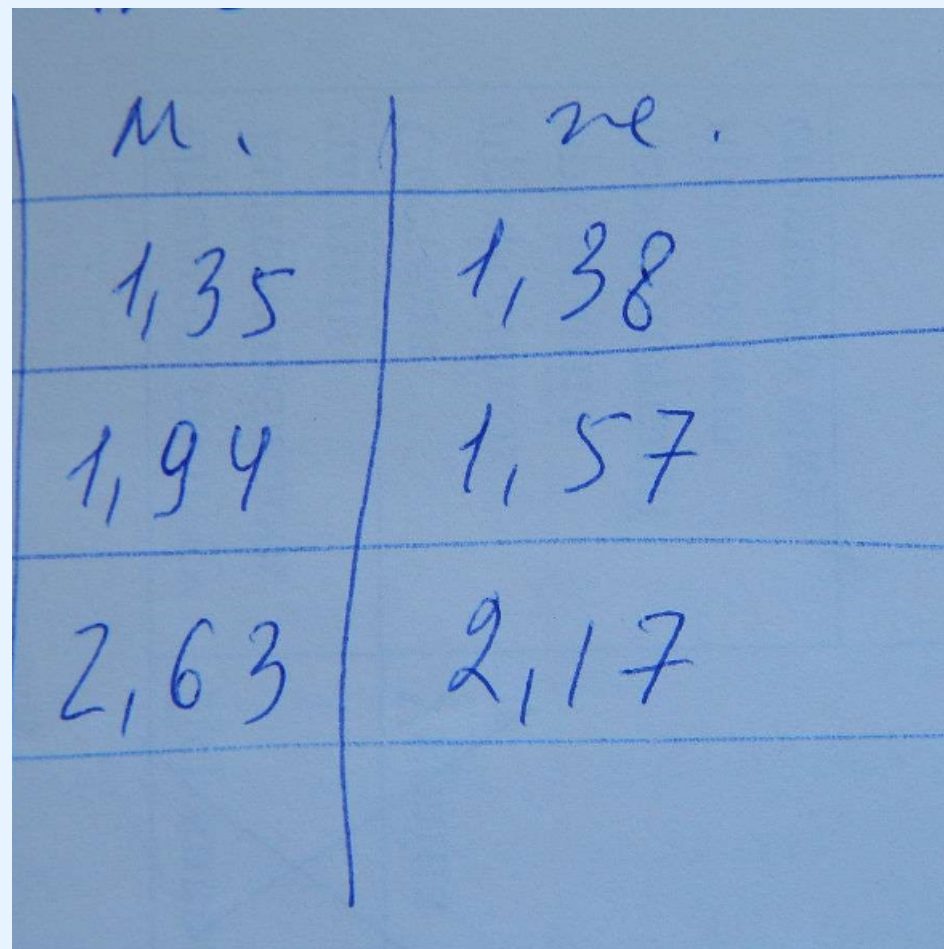 м. ж.
1,35 1,38
1,94 1,57
2,63 2,17